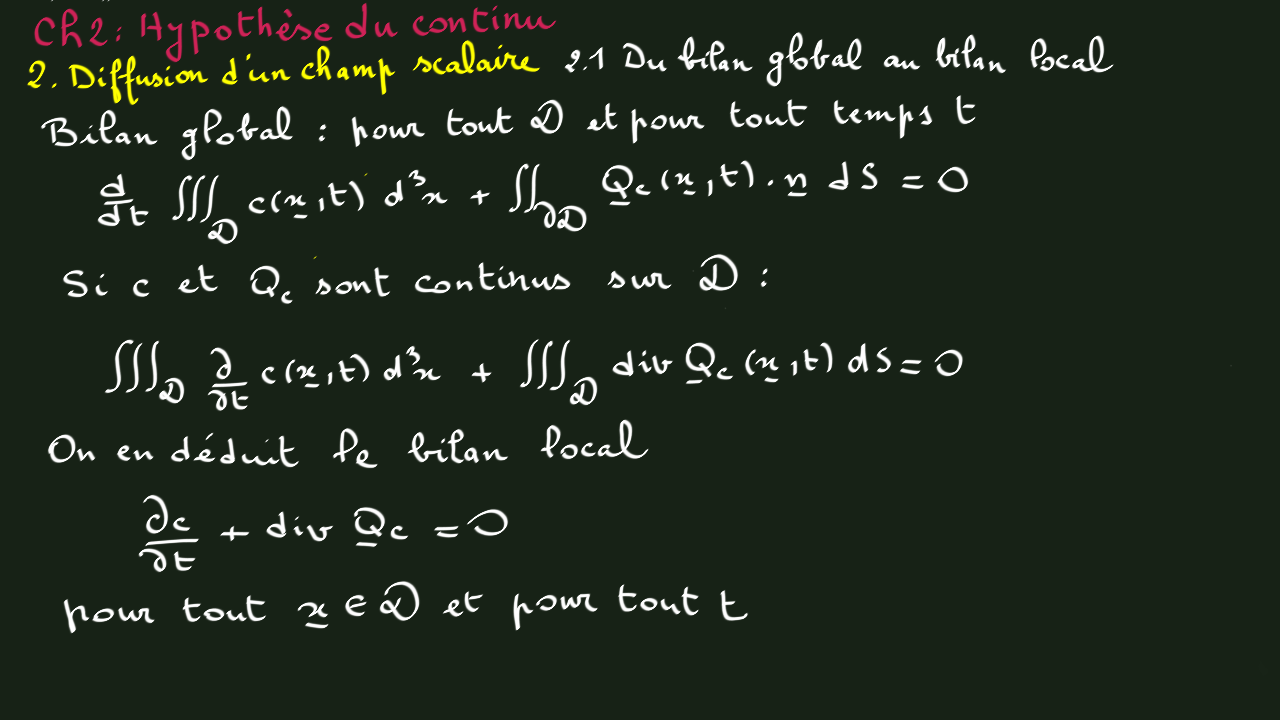 Ch2: Hypothèse du continu
2. Diffusion d'un champ scalaire 2.1 Du bilan global au bilan local
Bilan global : pour tout 𝒟 et pour tout temps t
d/dt ∭_𝒟 c(x̲,t) d³x + ∬_∂𝒟 Q̲c(x̲,t) . n̲ dS = 0
Si c et Qc sont continus sur 𝒟 :
∭_𝒟 ∂/∂t c(x̲,t) d³x + ∭_𝒟 div Q̲c (x̲,t) dS = 0
On en déduit le bilan local
∂c/∂t + div Q̲c = 0
pour tout x̲ ∈ 𝒟 et pour tout t